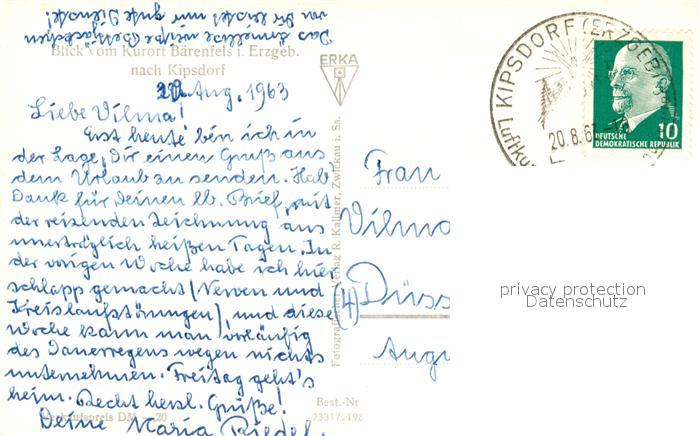 Das ärmellose weiße Bettjäckchen
von Dir leistet mir gute Dienste!
Blick vom Kurort Bärenfels i. Erzgeb.
nach Kipsdorf
ERKA
20. Aug. 1963
Liebe Vilma!
Erst heute bin ich in
der Lage, Dir einen Gruß aus
dem Urlaub zu senden. Hab
Dank für Deinen lb. Brief, mit
der reizenden Zeichnung aus
unerträglich heißen Tagen. In
der vorigen Woche habe ich hier
schlapp gemacht (Nerven und
Kreislaufstörungen), und diese
Woche kann man vorläufig
des Dauerregens wegen nichts
unternehmen. Freitag geht's
heim. Recht herzl. Grüße!
Deine Maria Riedel.
Verkaufspreis DM -.20
Verlag R. Kallmer, Zwickau i. Sa.
Best.-Nr
2331/
Frau
Vilma
(4) Düss
Augu
KIPSDORF (ERZGEB)
Luftku
20.8.6
10
DEUTSCHE
DEMOKRATISCHE REPUBLIK
privacy protection
Datenschutz